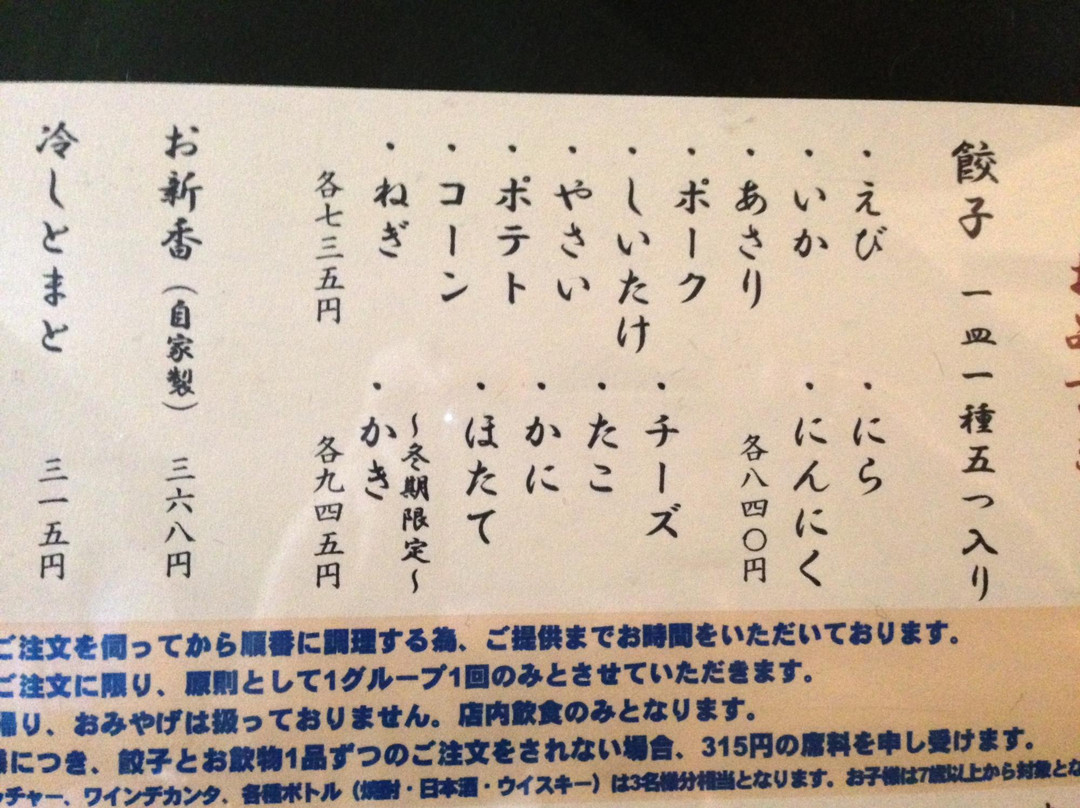 餃子 一皿一種五つ入り
・えび
・いか
・あさり
・ポーク
・しいたけ
・やさい
・ポテト
・コーン
・ねぎ
各七三五円
・にら
・にんにく
各八四〇円
・チーズ
・たこ
・かに
・ほたて
～冬期限定～
・かき
各九四五円
お新香（自家製） 三六八円
冷しとまと 三一五円
ご注文を伺ってから順番に調理する為、ご提供までお時間をいただいております。
ご注文に限り、原則として1グループ1回のみとさせていただきます。
帰り、おみやげは扱っておりません。店内飲食のみとなります。
様につき、餃子とお飲物1品ずつのご注文をされない場合、315円の席料を申し受けます。
ッチャー、ワインデカンタ、各種ボトル（焼酎・日本酒・ウイスキー）は3名様分相当となります。お子様は7歳以上から対象とな